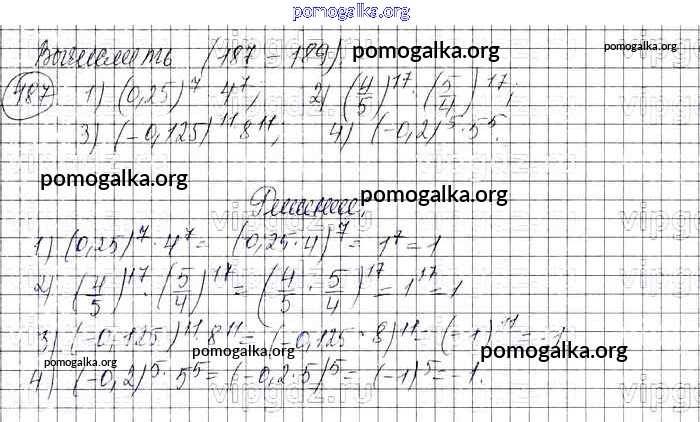 pomogalka.org
Вычислить (187 – 189). pomogalka.org pomogalka.org
187 1) (0,25)⁷ 4⁷; 2) (4/5)¹⁷ · (5/4)¹⁷;
3) (-0,125)¹¹ 8¹¹; 4) (-0,2)⁵ · 5⁵.
pomogalka.org
Решение. pomogalka.org
1) (0,25)⁷ · 4⁷ = (0,25 · 4)⁷ = 1⁷ = 1
2) (4/5)¹⁷ · (5/4)¹⁷ = (4/5 · 5/4)¹⁷ = 1¹⁷ = 1
3) (-0,125)¹¹ 8¹¹ = (-0,125 · 8)¹¹ = (-1)¹¹ = -1
pomogalka.org pomogalka.org pomogalka.org
4) (-0,2)⁵ · 5⁵ = (-0,2 · 5)⁵ = (-1)⁵ = -1.